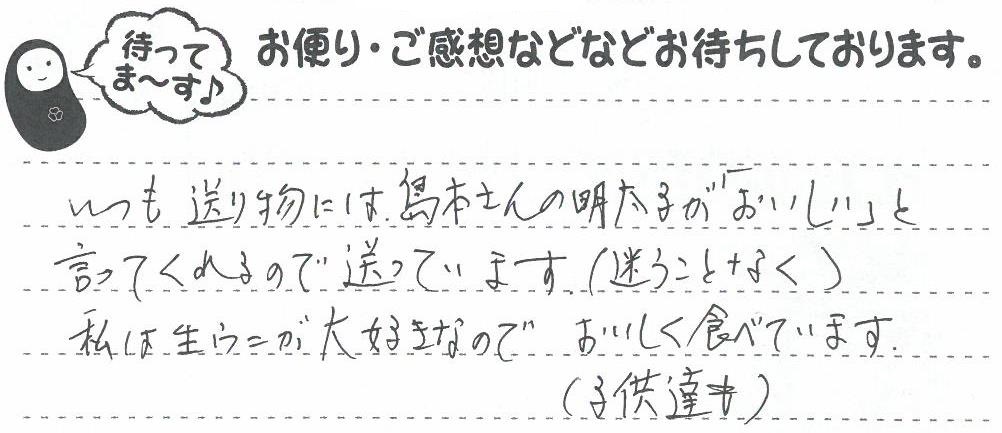 待って
ま〜す♪
お便り・ご感想などなどお待ちしております。
いつも送り物には、島本さんの明太子が「おいしい」と
言ってくれるので送っています。(迷うことなく)
私は生ウニが大好きなので おいしく食べています.
(子供達も)